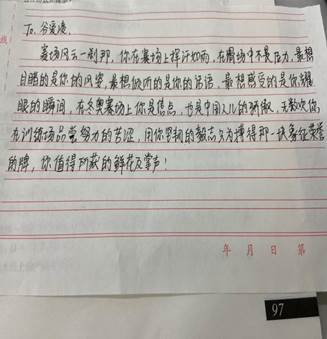 To. 谷爱凌.
赛场风云一刹那，你在赛场上挥汗如雨，在周场中不是压力，最想
目睹的是你的风姿，最想倾听的是你的话语，最想感受的是你耀
眼的瞬间，在冬奥赛场上你是焦点，也是中国人儿的骄傲，无数次你
在训练场品尝努力的苦涩，用你坚韧的毅志只为博得那一块象征荣誉
的牌，你值得所献的鲜花及掌声！
年 月 日 第
97